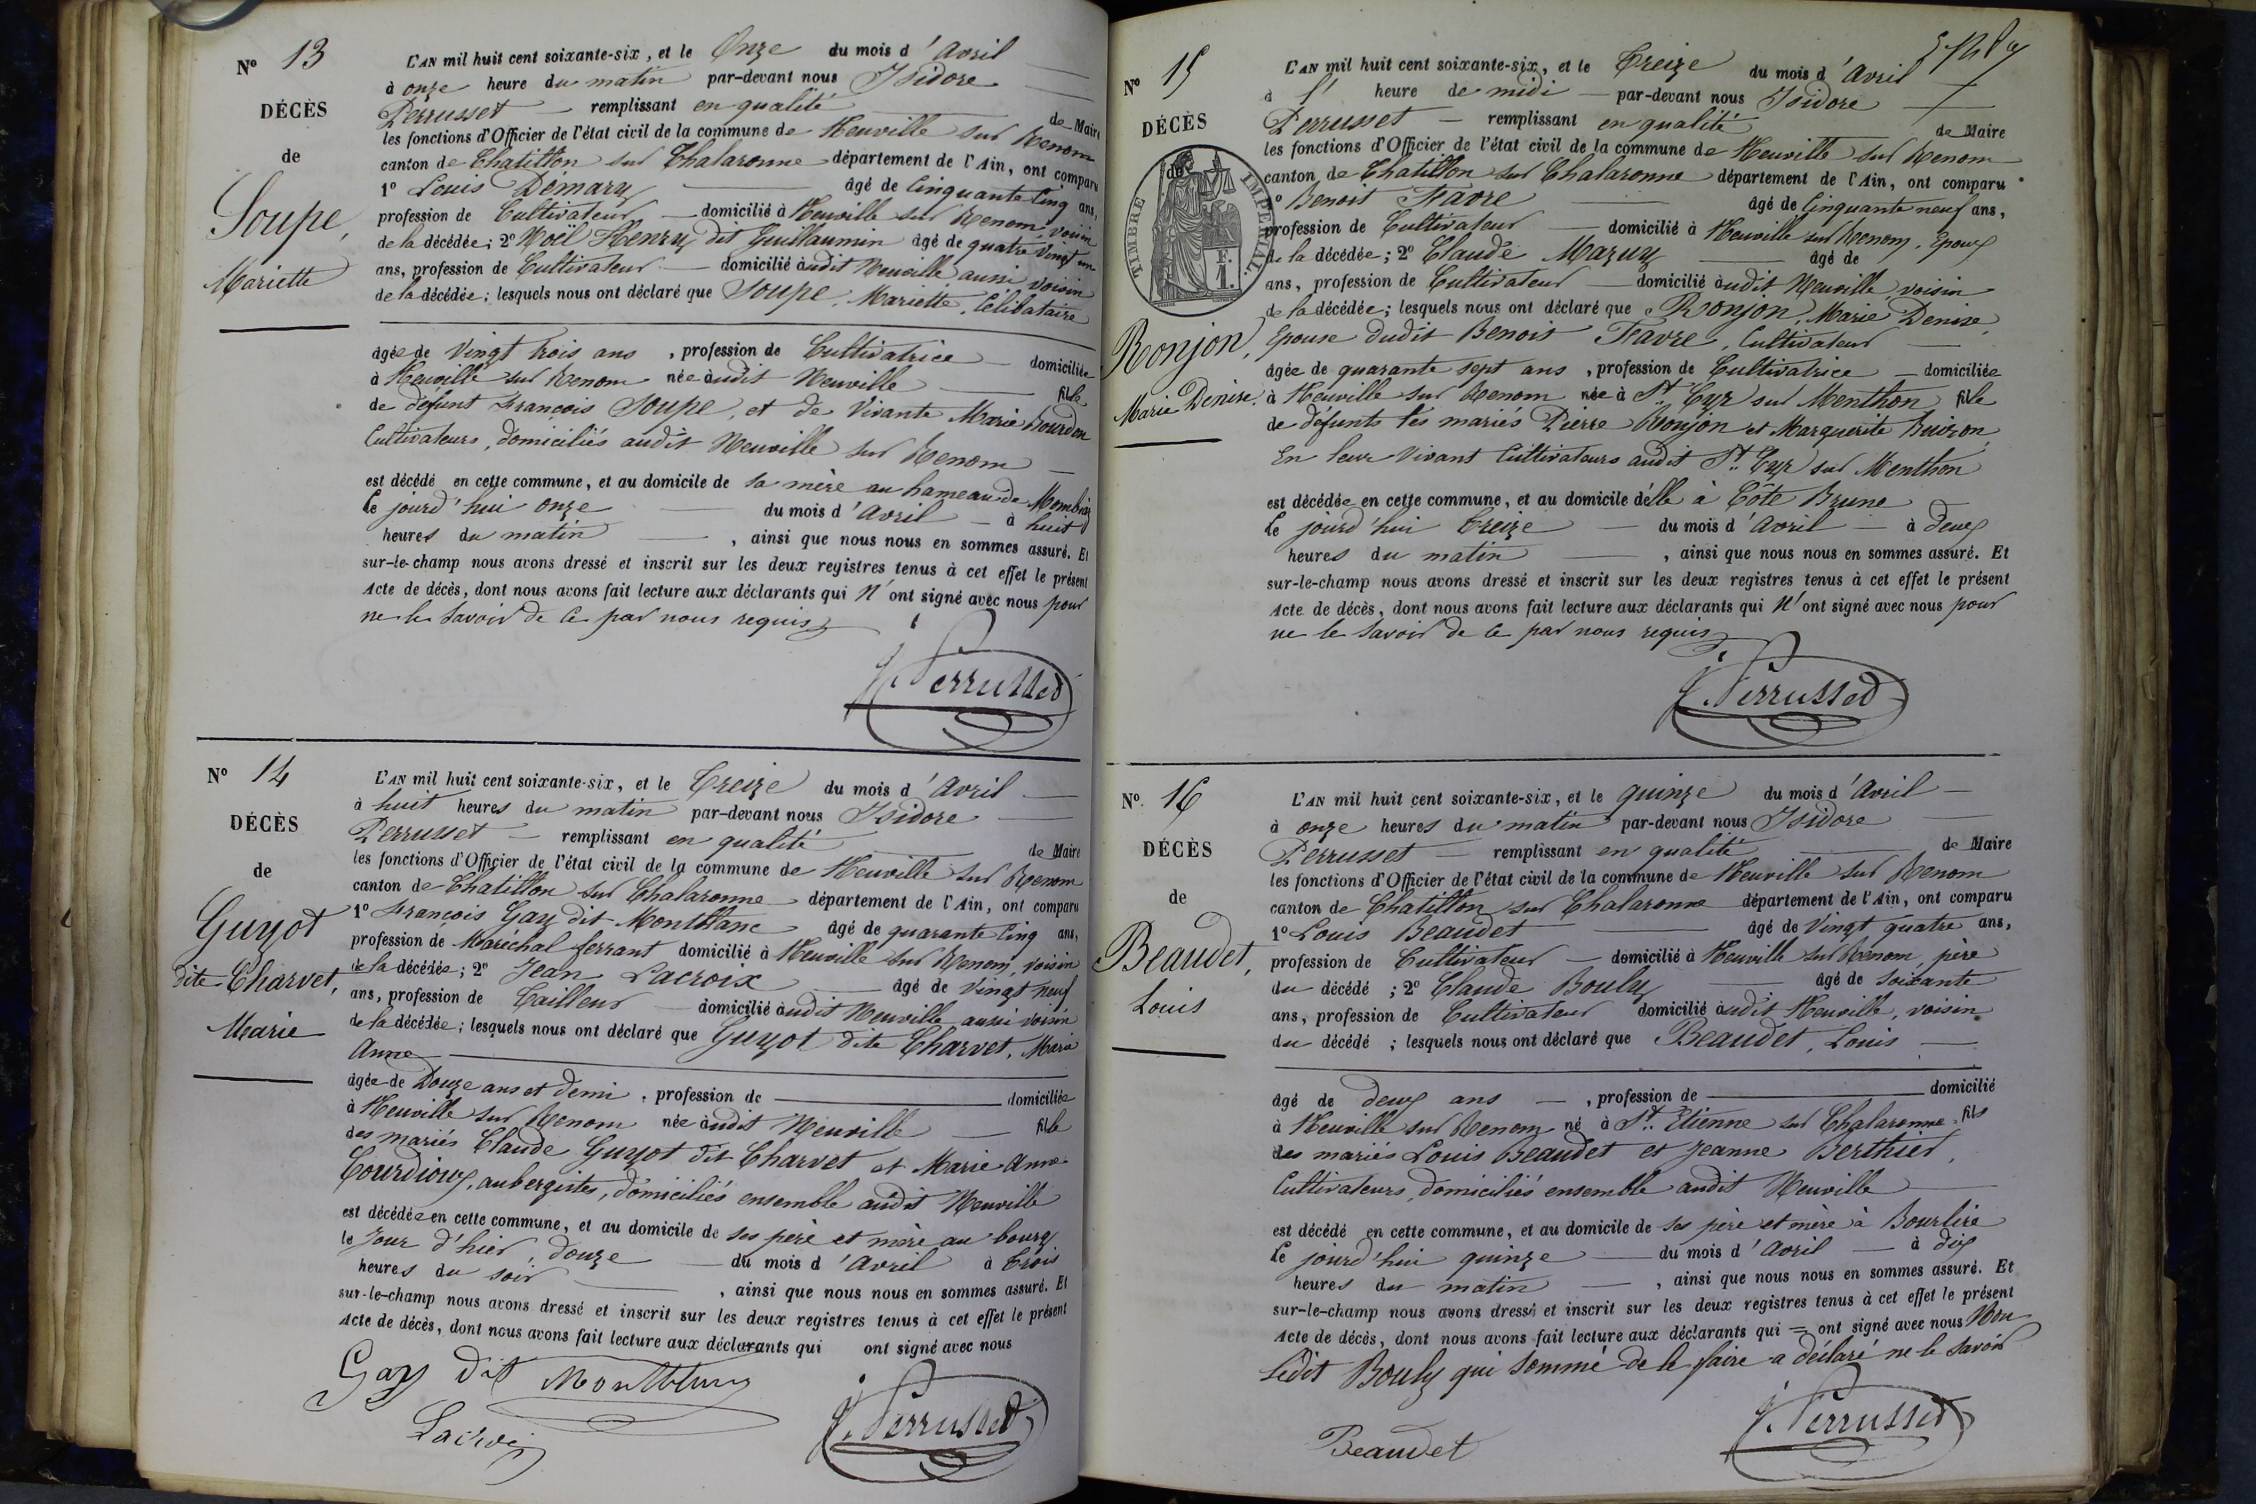 N° 13
DÉCÈS
de
Soupe,
Mariette
L'AN mil huit cent soixante-six, et le Onze du mois d'Avril
à onze heure du matin par-devant nous Isidore
Perrusset remplissant en qualité de Maire
les fonctions d'Officier de l'état civil de la commune de Neuville sur Renom
canton de Chatillon sur Chalaronne département de l'Ain, ont comparu
1° Louis Démary âgé de Cinquante Cinq ans,
profession de Cultivateur domicilié à Neuville sur Renom, voisin
de la décédée; 2° Noël Henry dit Guillaumin âgé de quatre Vingt un
ans, profession de Cultivateur domicilié audit Neuville aussi voisin
de la décédée; lesquels nous ont déclaré que Soupe, Mariette, Célibataire
âgée de Vingt trois ans, profession de Cultivatrice domiciliée
à Neuville sur Renom née audit Neuville fille
de défunt François Soupe, et de Vivante Marie Bourdon
Cultivateurs, domiciliés audit Neuville sur Renom
est décédé en cette commune, et au domicile de sa mère au hameau de
Le jourd'hui onze du mois d'Avril à huit
heures du matin, ainsi que nous nous en sommes assuré. Et
sur-le-champ nous avons dressé et inscrit sur les deux registres tenus à cet effet le présent
Acte de décès, dont nous avons fait lecture aux déclarants qui N'ont signé avec nous pour
ne le Savoir de Ce par nous requis
J. Perrusset
N° 14
DÉCÈS
de
Guyot
dite Charvet,
Marie
L'AN mil huit cent soixante-six, et le Treize du mois d'Avril
à huit heures du matin par-devant nous Isidore
Perrusset remplissant en qualité de Maire
les fonctions d'Officier de l'état civil de la commune de Neuville sur Renom
canton de Chatillon sur Chalaronne département de l'Ain, ont comparu
1° François Gay dit Montblanc âgé de quarante Cinq ans,
profession de Maréchal ferrant domicilié à Neuville sur Renom, voisin
de la décédée; 2° Jean Lacroix âgé de Vingt neuf
ans, profession de Tailleur domicilié audit Neuville aussi voisin
de la décédée; lesquels nous ont déclaré que Guyot dite Charvet, Marie
Anne
âgée de Douze ans et demi, profession de domiciliée
à Neuville sur Renom née audit Neuville fille
des mariés Claude Guyot dit Charvet et Marie Anne
Tourdioux, aubergistes, domiciliés ensemble audit Neuville
est décédée en cette commune, et au domicile de ses père et mère au bourg
le Jour d'hier, douze du mois d'Avril à Trois
heures du soir, ainsi que nous nous en sommes assuré. Et
sur-le-champ nous avons dressé et inscrit sur les deux registres tenus à cet effet le présent
Acte de décès, dont nous avons fait lecture aux déclarants qui ont signé avec nous
Gay dit Montblanc
Lacroix
J. Perrusset
N° 15
DÉCÈS
de
TIMBRE IMPÉRIAL.
F.
1.
Ronjon,
Marie Denise.
L'AN mil huit cent soixante-six, et le Treize du mois d'Avril
à 1' heure de midi par-devant nous Isidore
Perrusset remplissant en qualité de Maire
les fonctions d'Officier de l'état civil de la commune de Neuville sur Renom
canton de Chatillon sur Chalaronne département de l'Ain, ont comparu
° Benoit Favre âgé de Cinquante neuf ans,
profession de Cultivateur domicilié à Neuville sur Renom, Epoux
de la décédée; 2° Claude Mazuy âgé de
ans, profession de Cultivateur domicilié audit Neuville, voisin
de la décédée; lesquels nous ont déclaré que Ronjon, Marie Denise,
Epouse dudit Benoit Favre, Cultivateur
âgée de quarante sept ans, profession de Cultivatrice domiciliée
à Neuville sur Renom née à St. Cyr sur Menthon fille
de défunts les mariés Pierre Ronjon et Marguerite Buizon,
En leur Vivant Cultivateurs audit St. Cyr sur Menthon
est décédée en cette commune, et au domicile d'elle à Côte Brune
Le jourd'hui Treize du mois d'Avril à deux
heures du matin, ainsi que nous nous en sommes assuré. Et
sur-le-champ nous avons dressé et inscrit sur les deux registres tenus à cet effet le présent
Acte de décès, dont nous avons fait lecture aux déclarants qui N'ont signé avec nous pour
ne le Savoir de Ce par nous requis
J. Perrusset
N° 16
DÉCÈS
de
Beaudet,
Louis
L'AN mil huit cent soixante-six, et le quinze du mois d'Avril
à onze heures du matin par-devant nous Isidore
Perrusset remplissant en qualité de Maire
les fonctions d'Officier de l'état civil de la commune de Neuville sur Renom
canton de Chatillon sur Chalaronne département de l'Ain, ont comparu
1° Louis Beaudet âgé de Vingt quatre ans,
profession de Cultivateur domicilié à Neuville sur Renom, père
du décédé; 2° Claude Bouly âgé de Soixante
ans, profession de Cultivateur domicilié audit Neuville, voisin
du décédé; lesquels nous ont déclaré que Beaudet, Louis
âgé de deux ans, profession de domicilié
à Neuville sur Renom né à St. Etienne sur Chalaronne, fils
des mariés Louis Beaudet et Jeanne Berthier,
Cultivateurs, domiciliés ensemble audit Neuville
est décédé en cette commune, et au domicile de ses père et mère à Bourlire
Le jourd'hui quinze du mois d'Avril à dix
heures du matin, ainsi que nous nous en sommes assuré. Et
sur-le-champ nous avons dressé et inscrit sur les deux registres tenus à cet effet le présent
Acte de décès, dont nous avons fait lecture aux déclarants qui = ont signé avec nous Non
Ledit Bouly qui Sommé de le faire a déclaré ne le Savoir
Beaudet
J. Perrusset